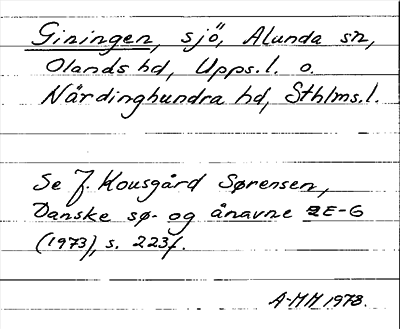 Giningen, sjö, Alunda sn,
Olands hd, Upps.l. o.
Närdinghundra hd, Sthlms.l.
Se J. Kousgård Sørensen,
Danske sø- og ånavne 2 E-G
(1973), s. 223f.
A-MH 1978.